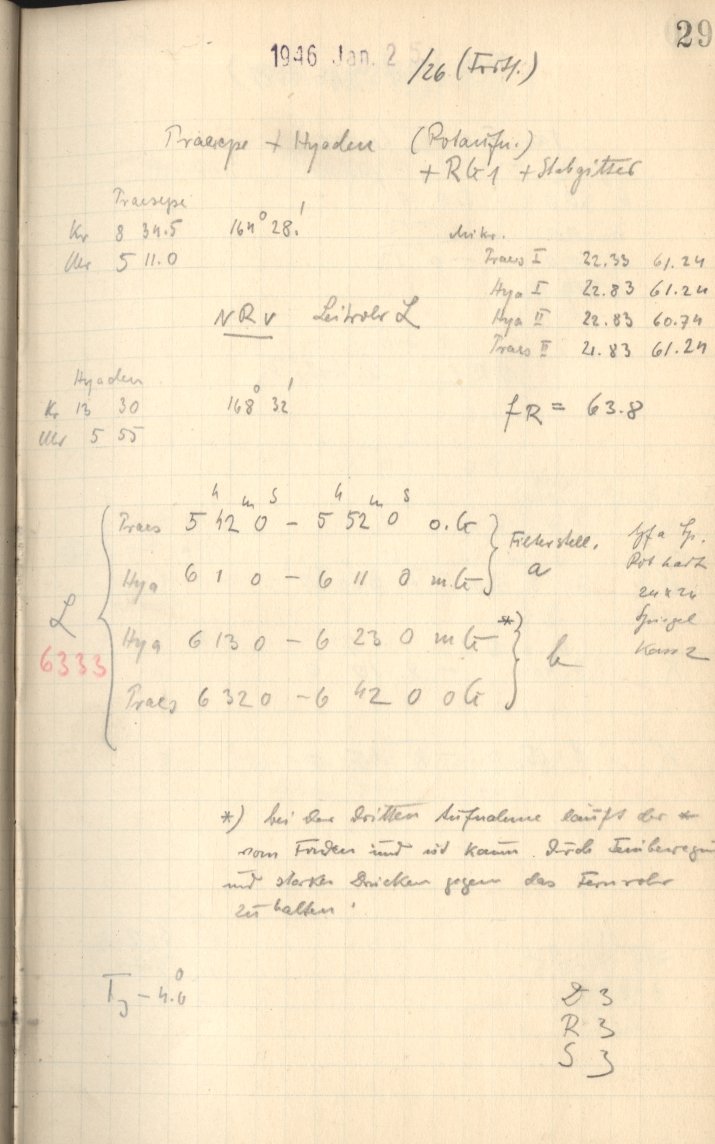 29
1946 Jan. 25/26 (Forts.)
Praesepe + Hyaden (Rotaufn.)
+ RG1 + Stabgitter
Praesepe
Kr 8 34.5 164° 28.'
Uhr 5 11.0
Mikr.
Praes I 22.33 61.24
Hya I 22.83 61.24
Hya II 22.83 60.74
Praes II 21.83 61.24
N R v Leitrohr L
Hyaden
Kr 13 30 168° 32'
Uhr 5 55
fR = 63.8
h m s h m s
Praes 5 42 0 – 5 52 0 o.G
Hya 6 1 0 – 6 11 0 m.G
Filterstell.
a
L
6333
Hya 6 13 0 – 6 23 0 mG *)
Praes 6 32 0 – 6 42 0 oG
b
Agfa Sp.
Rot hart
24x24
Spiegel
Kass 2
*) bei der dritten Aufnahme läuft der *
vom Faden und ist kaum durch Feinbewegun
und starken Drücken gegen das Fernrohr
zu halten.
TJ – 4.°6
D 3
R 3
S 3